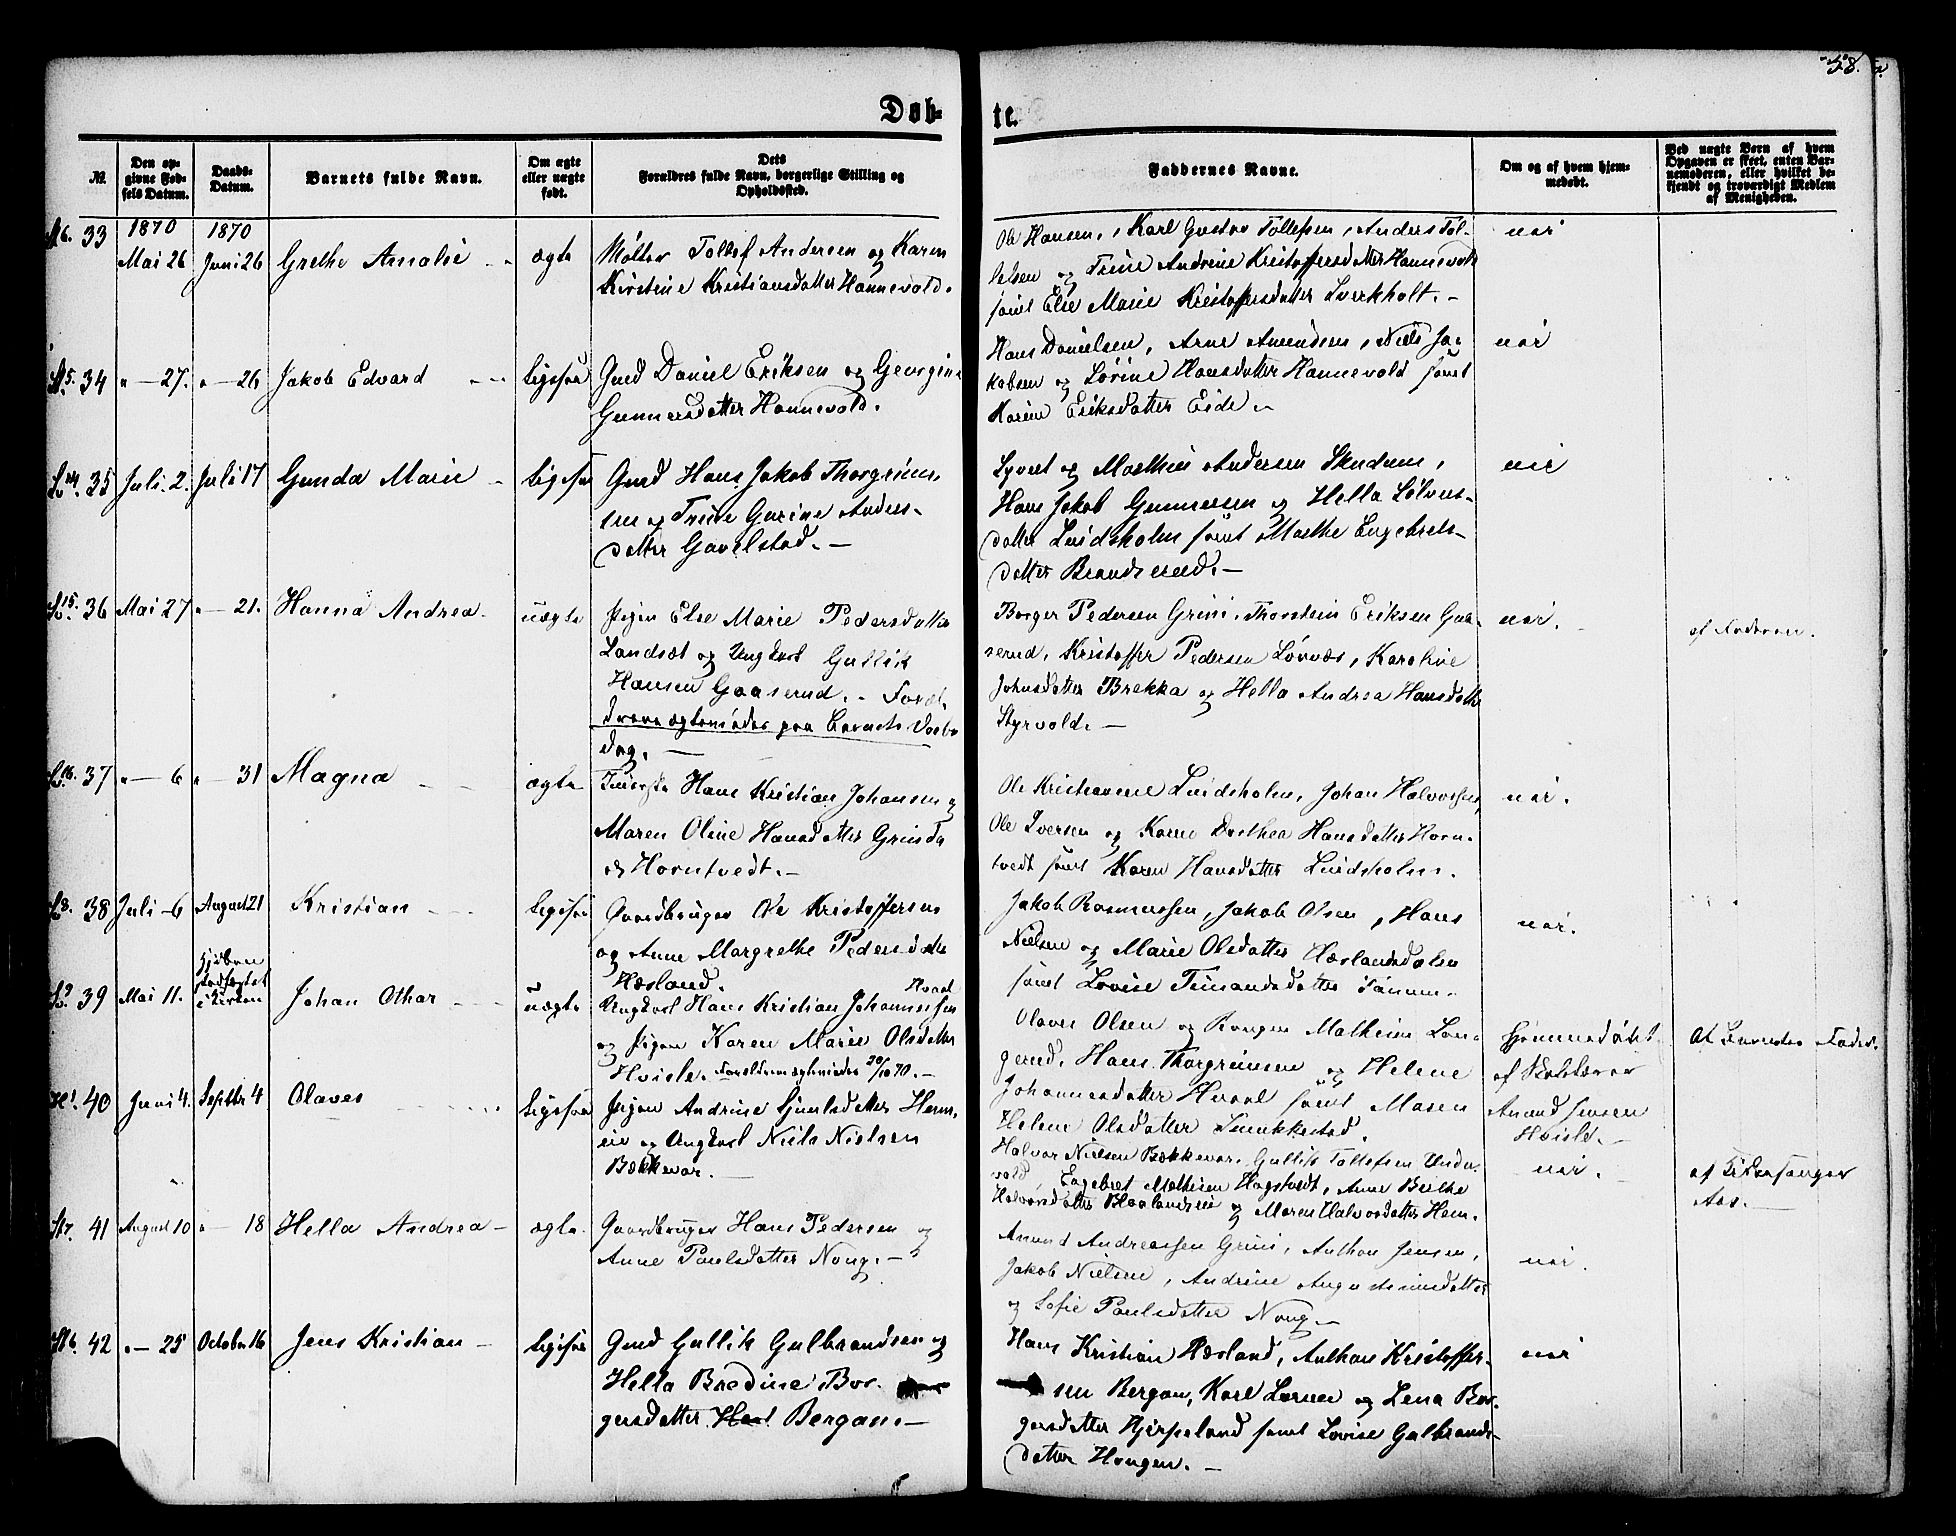 58.
Døb-
te.
№.
Den op-
givne Fød-
sels Datum.
Daabs-
Datum.
Barnets fulde Navn.
Om ægte
eller uægte
født.
Dets
Forældres fulde Navn, borgerlige Stilling og
Opholdssted.
Faddernes Navne.
Om og af hvem hjem-
medøbt.
Ved uægte Børn af hvem
Opgaven er skeet, enten Bar-
nemoderen, eller hvilket be-
kjendt og troværdigt Medlem
af Menigheden.
33
1870
Mai 26
1870
Juni 26
Grethe Amalie
ægte
Møller Tollef Andersen og Karen
Kirstine Kristiansdatter Hannevold.
Ole Hansen, Karl Gustav Tollefsen, Anders Tol-
lefsen og Trine Andrine Kristoffersdatter Hannevold
samt Else Marie Kristoffersdatter
nei
34
" — 27.
" — 26
Jakob Edvard
ligesaa
Gmd Daniel Eriksen og Georgine
Gunnersdatter Hannevold.
Hans Danielsen, Arne Amundsen, Niels Ja-
kobsen og Lovine Hansdatter Hannevold samt
Karen Eriksdatter Eide
nei
35
Juli 2.
Juli 17
Gunda Marie
ligesaa
Gmd Hans Jakob Thorgrims-
sen og Trine Gurine Anders-
datter Gavelstad.
og Mathies Andersen
Hans Jakob Gunnersen og Hella Sølves-
datter Lindsholm samt Marthe Engebrets-
datter Brandserud.
nei
36
Mai 27
" — 21.
Hanna Andrea
uægte
Pigen Else Marie Pedersdatter
Landsæt og Ungkarl Gullik
Hansen Gaaserud. - Foræl-
drene ægteviedes paa Barnets Daabs
dag.
Borger Pedersen Grini, Thorstein Eriksen Gaa-
serud, Kristoffer Pedersen Løvaas, Karoline
Johnsdatter Brekka og Hella Andrea Hansdatter
Styrvold.
nei.
af Faderen.
37
" — 6
" — 31
Magna
ægte
Hans Kristian Johansen og
Maren Oline Hansdatter Grinda
og Horntvedt.
Ole Lindsholm, Johan Halvorsen,
Ole Iversen og Karen Dorthea Hansdatter Horn-
tvedt samt Karen Hansdatter Lindsholm.
nei.
38
Juli - 6
August 21
Kristian
ligesaa
Gaardbruger Ole Kristoffersen
og Anne Margrethe Pedersdatter
Hæsland.
Jakob Rasmussen, Jakob Olsen, Hans
Nielsen og Marie Olsdatter Hæslandsdalen
samt Lovise
nei.
39
Mai 11.
stadfæstet
i Kirken
Johan Othar
uægte
Ungkarl Hans Kristian Johannessen Hvaal
og Pigen Karen Marie Olsdatter
Hvisle. Forældrene ægteviedes 20/10 70.
Olaves Olsen og Mathea Lan-
gerud, Hans Thorgrimsen og Helene
Johannesdatter Hvaal samt Maren
Helene Olsdatter
Hjemmedøbt
af Skolelærer
Amund Jensen
Hvisle.
Af Barnets Fader.
40
Juni 4.
Septbr 4
Olaves
ligesaa
Pigen Andrine
og Ungkarl Niels Nielsen
Bækkevar.
Halvor Nielsen Bækkevar, Gullik Tollefsen Under-
vold, Engebret Mathisen Hagstvedt, Anne Birthe
Halvorsdatter og Maren Halvorsdatter Hem.
nei.
af Kirkesanger
Aas.
41
August 10
" — 18
Hella Andrea
ægte
Gaardbruger Hans Pedersen og
Anne Paulsdatter Nong.
Amund Andreassen Grini, Anthon Jensen,
Jakob Nielsen, Andrine Augustinusdatter
og Sofie Paulsdatter Nong.
nei.
42
" — 25
October 16
Jens Kristian
ligesaa
Gmd Gullik Gulbrandsen og
Hella Bredine Bor-
gersdatter Bergan.
Hans Kristian Hæsland, Anthon Kristoffer-
sen Bergan, Karl Larsen og Lena Bor-
gersdatter Kjerpeland samt Lovise Gulbrands-
datter Haugen.
nei